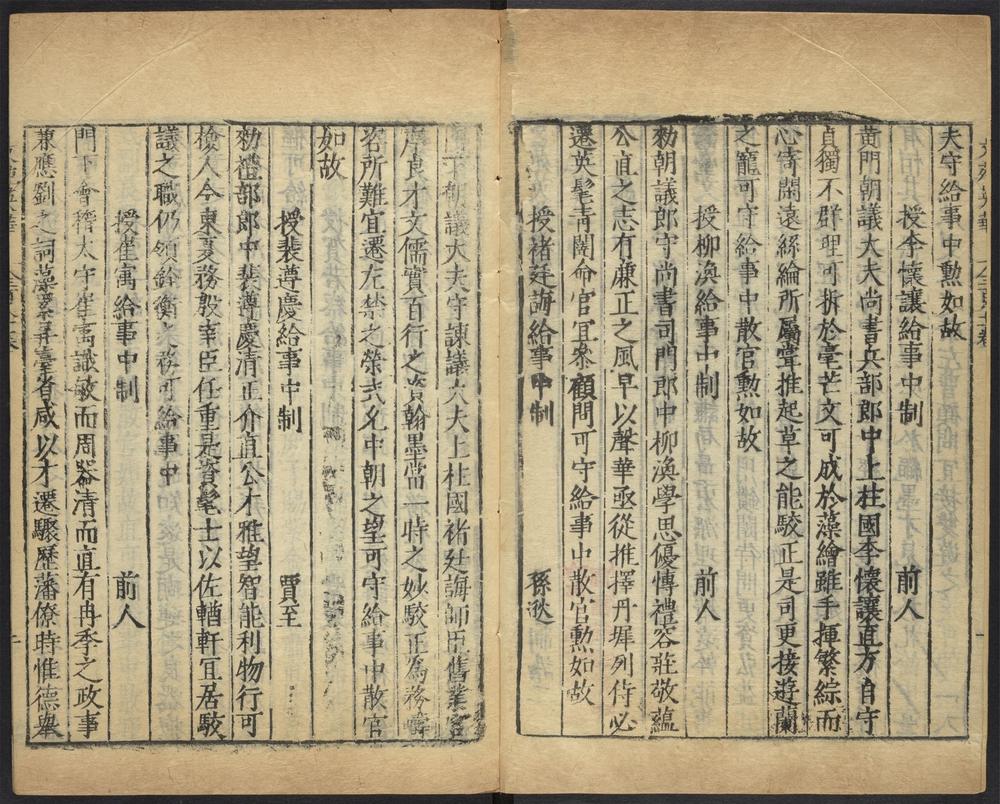 夫守給事中勲如故
授李懷讓給事中制 前人
黄門朝議大夫尚書兵部郎中上柱國李懷讓直方自守
貞獨不群理可拆於毫芒文可成於藻繪雖手揮繁綜而
心寄閑遠絲綸所屬嘗推起草之能駮正是司更接遊蘭
之寵可守給事中散官勲如故
授柳渙給事中制 前人
勑朝議郎守尚書司門郎中柳渙學思優慱禮容莊敬蘊
公直之志有亷正之風早以聲華亟從推擇丹墀列侍必
選英髦青闈命官宜叅顧問可守給事中散官勲如故
授褚廷誨給事中制 孫逖
門下朝議大夫守諫議大夫上柱國褚廷誨師臣舊業
良才文儒實百行之資翰墨當一時之妙駮正為務疇
咨所難宜遷左禁之榮式允中朝之望可守給事中散官
如故
授裴遵慶給事中制 賈至
勑禮部郎中裴遵慶清正介直公才雅望智能利物行可
檢人今東夏務殷宰臣任重是資髦士以佐輶軒宜居駮
議之職仍領銓衡之務可給事中
授崔寓給事中制 前人
門下會稽太守崔寓識敏而周器清而直有冉季之政事
兼應劉之詞藻累昇臺省咸以才遷驟歷藩僚時惟德舉